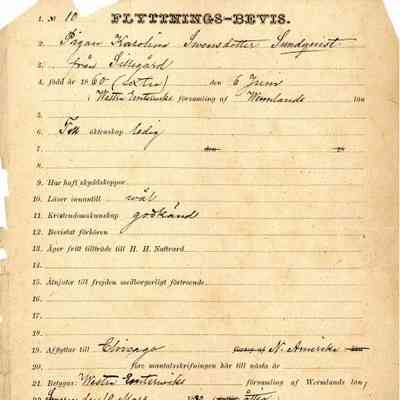 1. № 10 FLYTTNINGS-BEVIS.
2. Pigan Karolina Swensdotter Sundqvist
3. från Sillegård
4. född år 1860 (sextio) den 6 Juni
5. (Westra Emterviks församling af Wermlands län
6. Till äktenskap ledig
7. den 18
8.
9. Har haft skyddskoppor.
10. Läser innantill wäl
11. Kristendomskunskap godkänd
12. Bevistat förhören
13. Äger fritt tillträde till H. H. Nattvard.
14.
15. Åtnjuter till frejden medborgerligt förtroende.
16.
17.
18.
19. Afflyttar till Chicago församling af N. Amerika län
20. före mantalsskrifningen här till nästa år
21. Betygar Westra Emterviks församling af Wermlands län
22. den Mars åttio